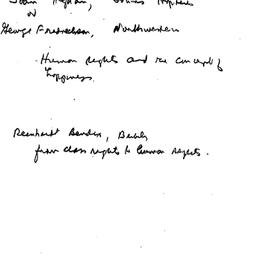 George Fredrickson, Northwestern
Human rights and the concept of
happiness.
Reinhard Bendix, Berkeley
from class rights to human rights.